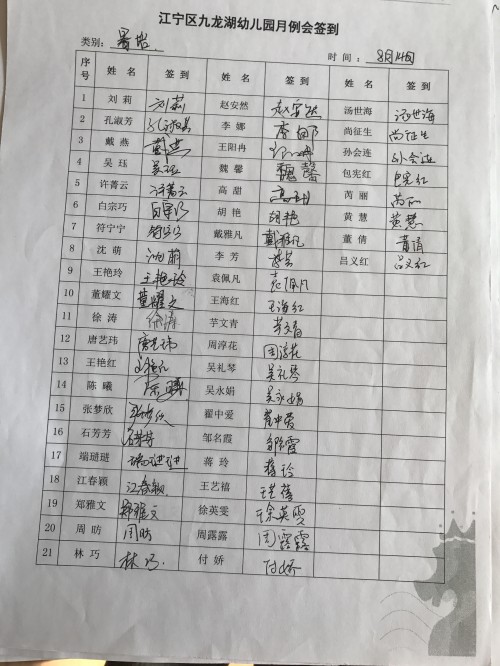 江宁区九龙湖幼儿园月例会签到
类别： 暑培 时间：8月14日
序号 姓名 签到 姓名 签到 姓名 签到
1 刘莉 刘莉 赵安然 赵安然 汤世海 汤世海
2 孔淑芳 孔淑芳 李娜 李娜 尚征生 尚征生
3 戴燕 戴燕 王阳冉 孙会连 孙会连
4 吴珏 吴珏 魏馨 魏馨 包宪红 包宪红
5 许菁云 许菁云 高甜 高甜 芮丽 芮丽
6 白宗巧 白宗巧 胡艳 胡艳 黄慧 黄慧
7 符宁宁 符宁宁 戴雅凡 戴雅凡 董倩 董倩
8 沈萌 沈萌 李芳 李芳 吕义红 吕义红
9 王艳玲 王艳玲 袁佩凡 袁佩凡
10 董耀文 董耀文 王海红 王海红
11 徐涛 徐涛 芋文青 芋文青
12 唐艺玮 唐艺玮 周淳花 周淳花
13 王艳红 王艳红 吴礼琴 吴礼琴
14 陈曦 陈曦 吴永娟 吴永娟
15 张梦欣 张梦欣 翟中爱 翟中爱
16 石芳芳 石芳芳 邹名霞 邹名霞
17 端琎琎 端琎琎 蒋玲 蒋玲
18 江春颖 江春颖 王艺禧
19 郑雅文 郑雅文 徐英雯 徐英雯
20 周昉 周昉 周露露 周露露
21 林巧 林巧 付娇 付娇